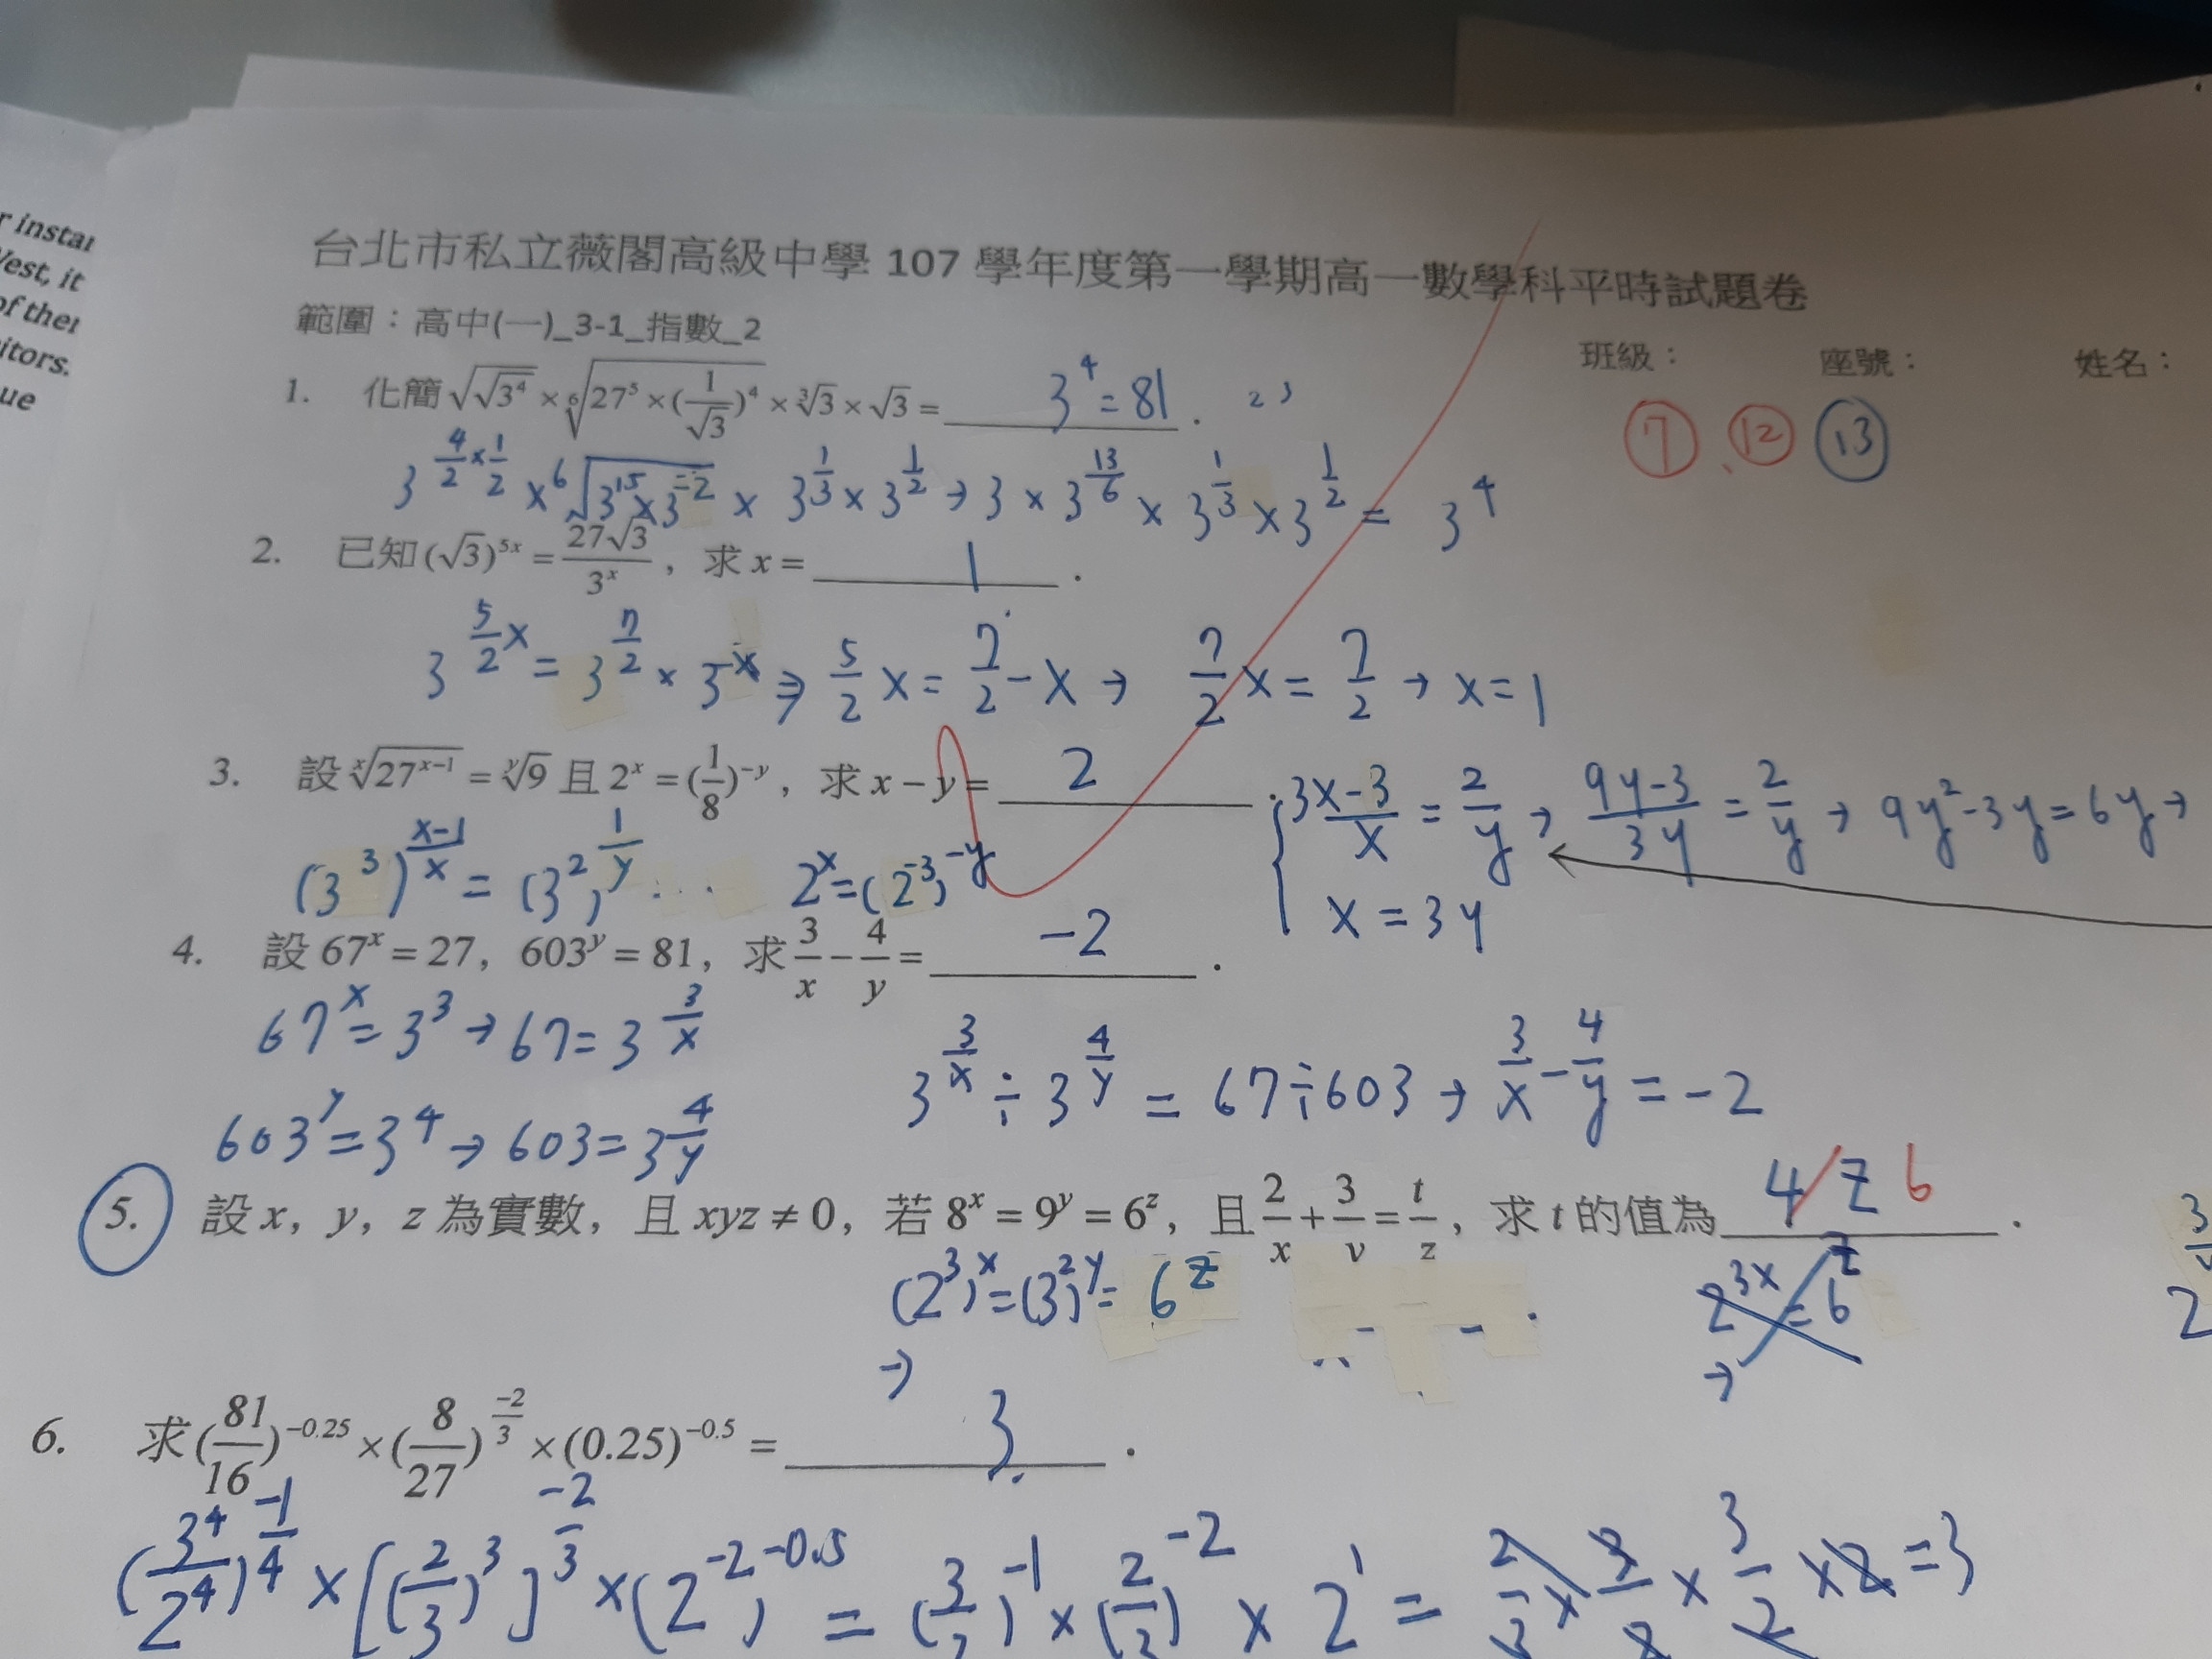 r instar
West, it
of ther
itors.
ue
台北市私立薇閣高級中學 107 學年度第一學期高一數學科平時試題卷
範圍：高中(一)_3-1_指數_2
班級： 座號： 姓名：
⑦、⑫ ⑬
1. 化簡 √√3⁴ × ⁶√(27⁵ × (1/√3)⁴) × ³√3 × √3 = 3⁴ = 81 . 2 3
3^(4/2 × 1/2) × ⁶√(3^15 × 3^-2) × 3^(1/3) × 3^(1/2) → 3 × 3^(13/6) × 3^(1/3) × 3^(1/2) = 3⁴
2. 已知 (√3)^(5x) = 27√3/3^x ，求 x = 1 .
3^(5/2 x) = 3^(7/2) × 3^-x ⇒ 5/2 x = 7/2 - x → 7/2 x = 7/2 → x = 1
3. 設 ˣ√(27^(x-1)) = ʸ√9 且 2^x = (1/8)^-y ，求 x - y = 2 .
{ (3x-3)/x = 2/y → (9y-3)/3y = 2/y → 9y² - 3y = 6y →
x = 3y
(3³)^((x-1)/x) = (3²)^(1/y) 2^x = (2^-3)^-y
4. 設 67^x = 27，603^y = 81，求 3/x - 4/y = -2 .
67^x = 3³ → 67 = 3^(3/x)
603^y = 3⁴ → 603 = 3^(4/y)
3^(3/x) ÷ 3^(4/y) = 67 ÷ 603 → 3/x - 4/y = -2
5. 設 x，y，z 為實數，且 xyz ≠ 0，若 8^x = 9^y = 6^z，且 2/x + 3/y = t/z ，求 t 的值為 4 z 6 .
(2³)^x = (3²)^y = 6^z
→
2^(3x) = 6^z
→
6. 求 (81/16)^-0.25 × (8/27)^(-2/3) × (0.25)^-0.5 = 3 .
(3⁴/2⁴)^(-1/4) × [(2/3)³]^(-2/3) × (2^-2)^-0.5 = (3/2)^-1 × (2/3)^-2 × 2^1 = 2/3 × 3/2 × 3/2 × 2 = 3